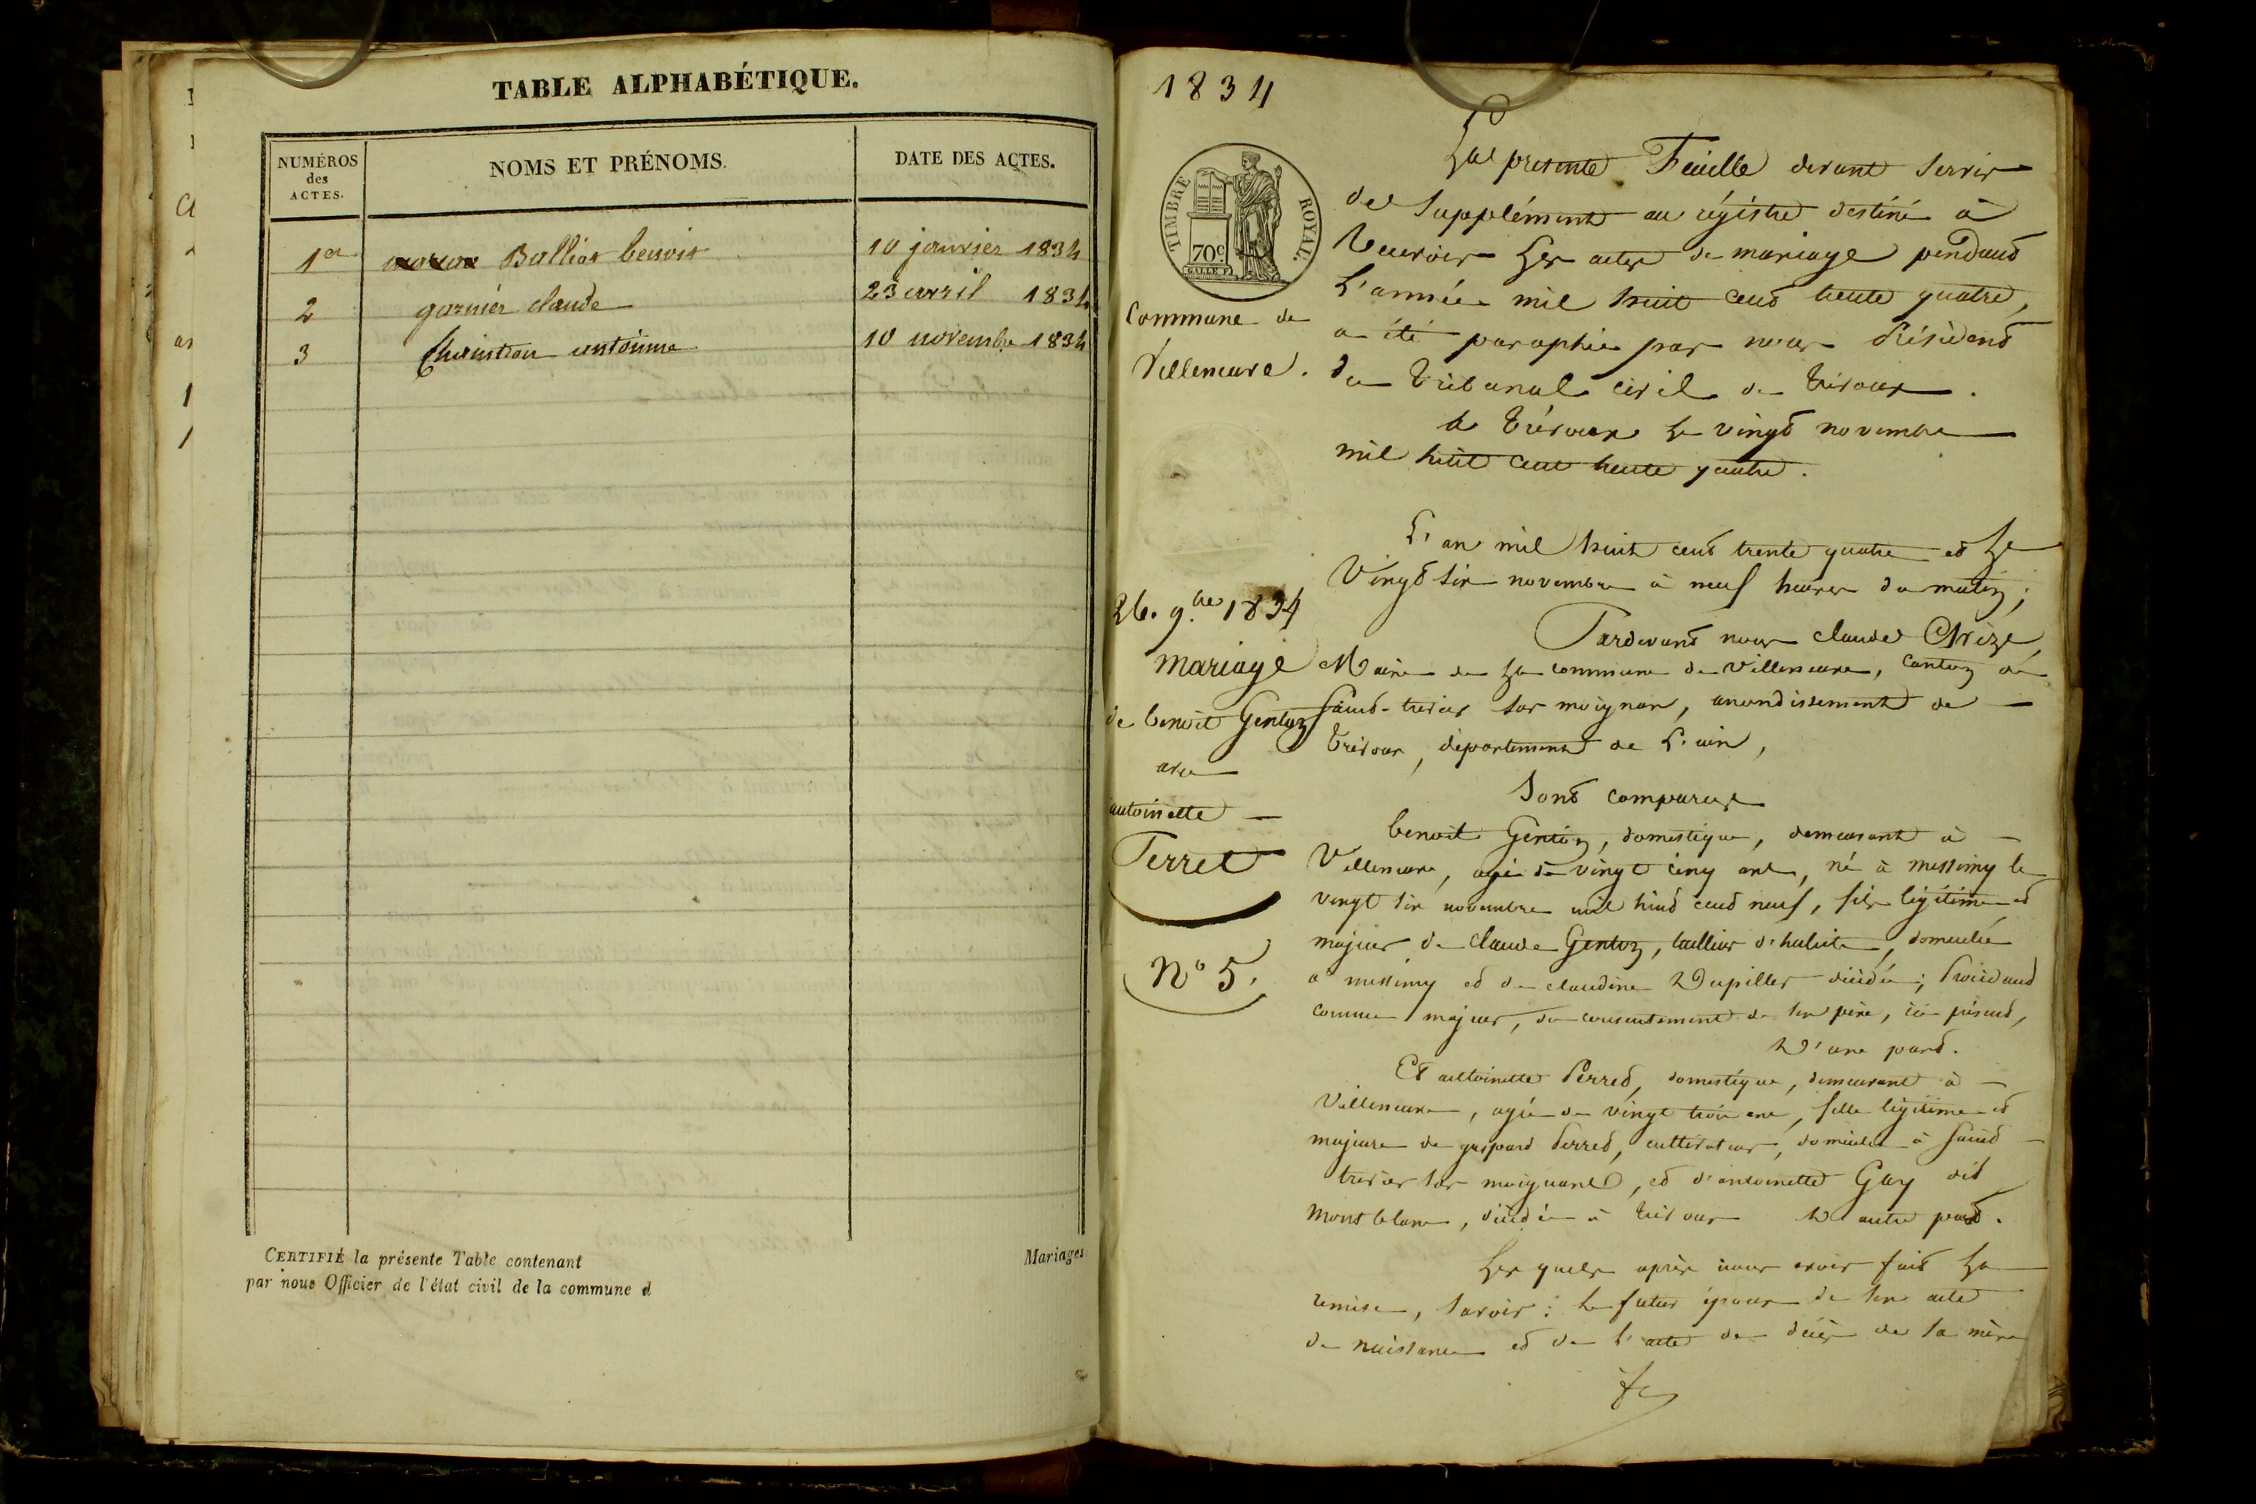 TABLE ALPHABÉTIQUE.
NUMÉROS des ACTES.
NOMS ET PRÉNOMS.
DATE DES ACTES.
1er Ballios benois 10 janvier 1834
2 garnier claude 23 avril 1834
3 10 novembre 1834
CERTIFIÉ la présente Table contenant
Mariages
par nous Officier de l'état civil de la commune d
1834
TIMBRE ROYAL.
70c.
La presente Feuille devant servir
de supplément au régistre destiné à
recevoir les actes de mariage pendant
L'année mil huit cent trente quatre,
a été paraphée par nous Président
du tribunal civil de trévoux.
a trévoux le vingt novembre
mil huit cent trente quatre.
Commune de
Villeneuve.
L'an mil huit cent trente quatre et le
Vingt six novembre à neuf heures du matin;
Pardevant nous claude
Maire de la commune de Villeneuve, canton de
Saint-trivier sur moignan, arrondissement de
trévoux, département de L'ain,
26. 9.bre 1834
mariage
de benoit Gentoz
avec
antoinette
Perret
N° 5.
Sont comparus
benoit Gentoz, domestique, demeurant à
Villeneuve, agé de vingt cinq ans, né à messimy le
vingt six novembre mil huit cent neuf, fils légitime et
majeur de claude Gentoz, tallieur d'habits, domicilié
à messimy et de claudine Dupiller décédée; procédant
comme majeur, du consentement de son père, ici présent,
D'une part.
Et antoinette Perret, domestique, demeurant à
Villeneuve, agée de vingt trois ans, fille légitime et
majeure de gaspard Perret, cultivateur, domicilié à Saint
trivier sur moignans, et d'antoinette Gay dit
Montblanc, décédée à trévoux D'autre part.
Les quels après nous avoir fait la
remise, savoir: le futur époux de son acte
de naissance et de l'acte de décès de sa mère